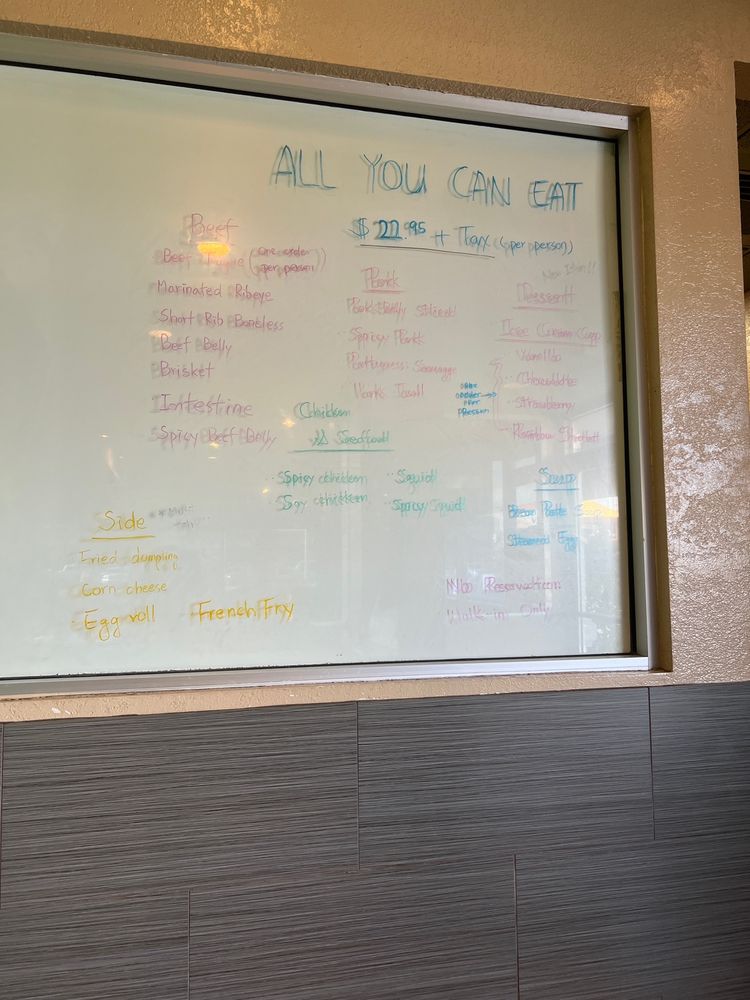 ALL YOU CAN EAT
$ 22.95 + Tax (per person)
Beef
Beef Tongue (one order per person)
Marinated Ribeye
Short Rib Boneless
Beef Belly
Brisket
Intestine
Spicy Beef Belly
Pork
Pork Belly Sliced
Spicy Pork
Portuguese Sausage
Pork Jowl
New Item!!
Dessert
Ice Cream Cup
Vanilla
Chocolate
Strawberry
Rainbow Sherbet
one
order
per
person
Chicken
& Seafood
Spicy chicken
Soy chicken
Squid
Spicy Squid
Soup
Bean Paste Soup
Steamed Egg
Side
Fried dumpling
Corn cheese
Egg roll
French Fry
No Reservation
Walk-in Only